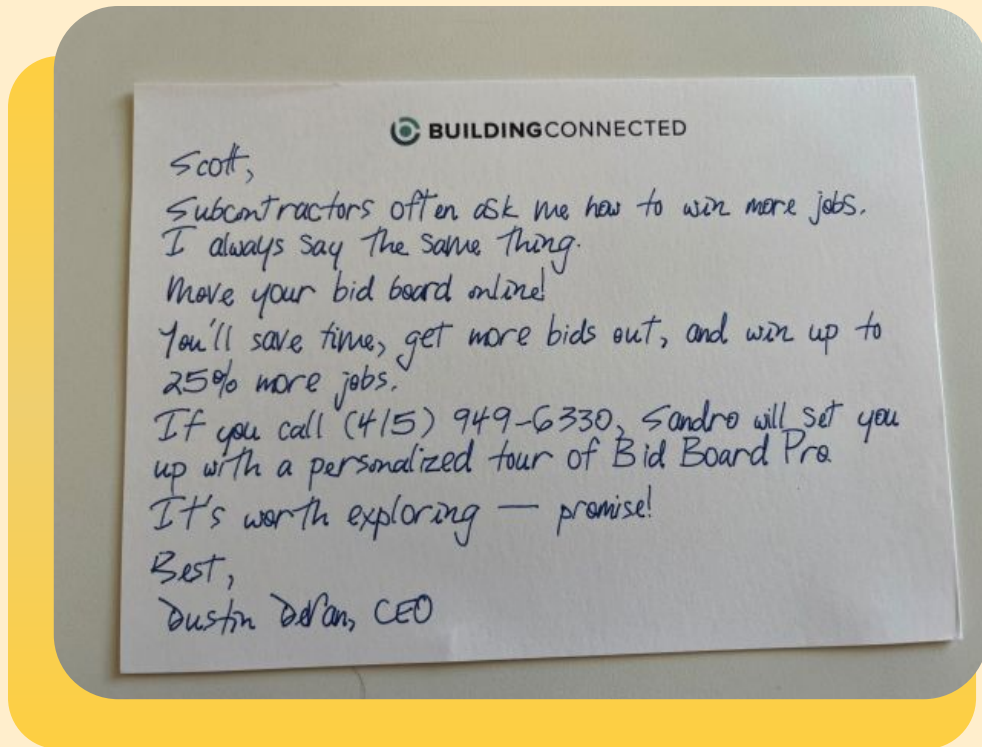 BUILDINGCONNECTED
Scott,
Subcontractors often ask me how to win more jobs.
I always say the same thing.
Move your bid board online!
You'll save time, get more bids out, and win up to
25% more jobs.
If you call (415) 949-6330, Sandro will set you
up with a personalized tour of Bid Board Pro.
It's worth exploring — promise!
Best,
Dustin DeVan, CEO